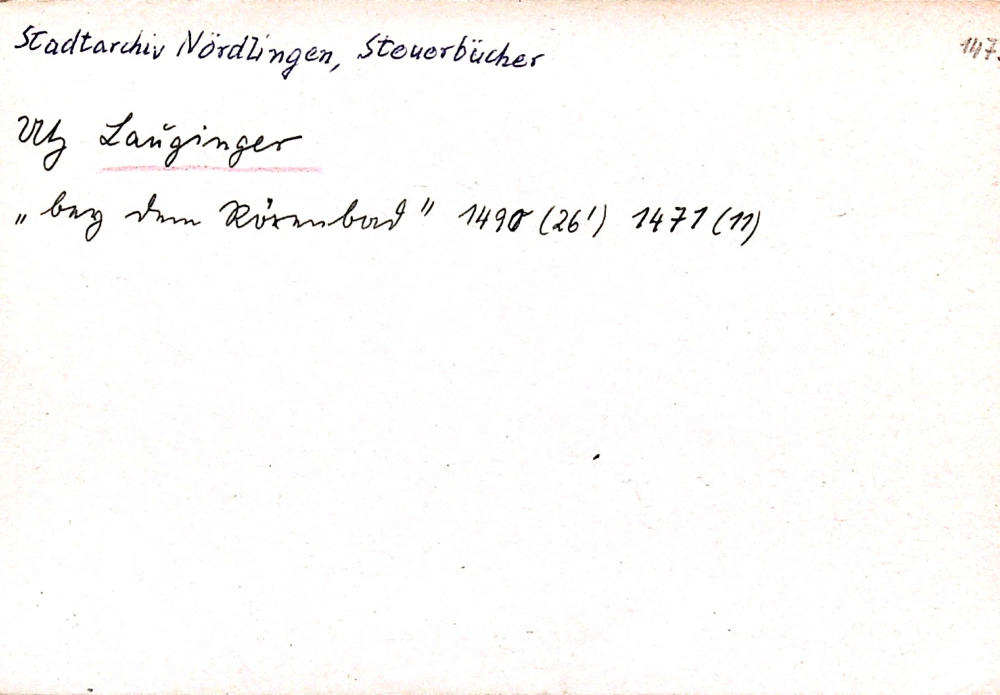 Stadtarchiv Nördlingen, Steuerbücher
147
Utz Lauginger
„bey dem Rörenbad" 1490 (26') 1471 (11)